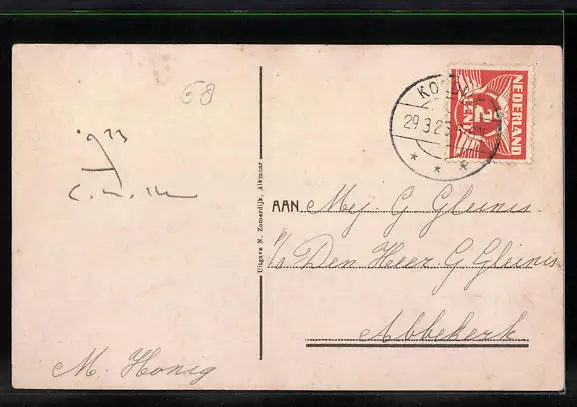 68
M. Honig
Uitgave N. Zomerdijk, Alkmaar
29.3.2
NEDERLAND
2
CENT
AAN Mej. G. Gleinis.
p/a Den Heer G. Gleinis
Abbekerk